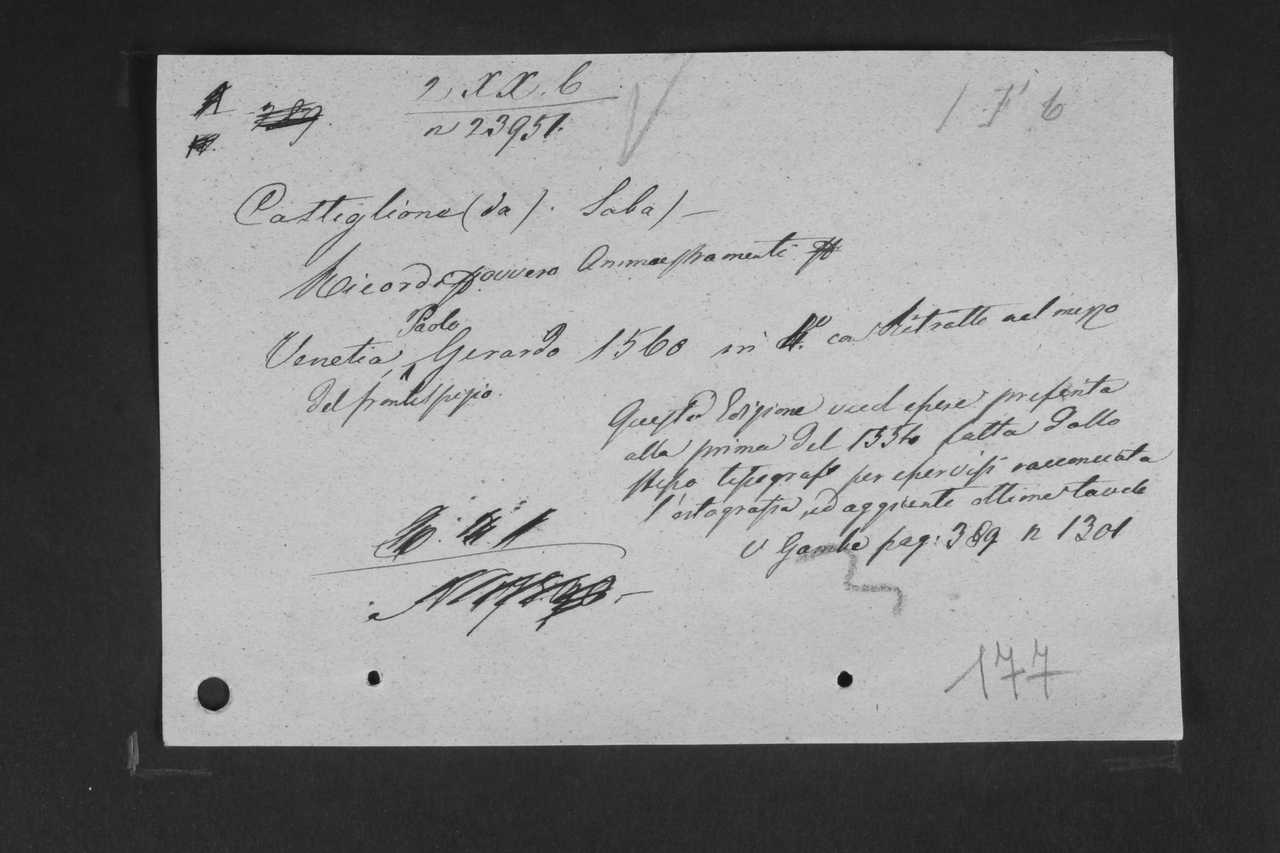 2 XX. 6
n 23951.
1 F 6
Castiglione (da). Saba) —
Ricordi ovvero Ammaestramenti
Paolo
Venetia Gerardo 1560 in 4.° con Ritratto nel mezzo
del frontespizio.
Questa Edizione vuol essere preferita
alla prima del 1554 fatta dallo
stesso tipografo per esservisi racconciata
l'ortografia, ed aggiunte ottime tavole
V Gamba pag: 389 n 1301
177